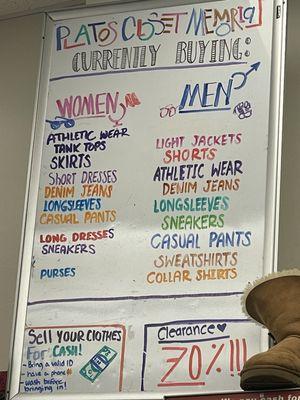 PLATOS CLOSET MEMRI9
CURRENTLY BUYING:
WOMEN
ATHLETIC WEAR
TANK TOPS
SKIRTS
SHORT DRESSES
DENIM JEANS
LONGSLEEVES
CASUAL PANTS
LONG DRESSES
SNEAKERS
PURSES
MEN
LIGHT JACKETS
SHORTS
ATHLETIC WEAR
DENIM JEANS
LONGSLEEVES
SNEAKERS
CASUAL PANTS
SWEATSHIRTS
COLLAR SHIRTS
Sell YOUR CLOTHES
For CASH!
- Bring a valid ID
- have a phone #
- wash before
bringing in!
Clearance ♥
70%!!!